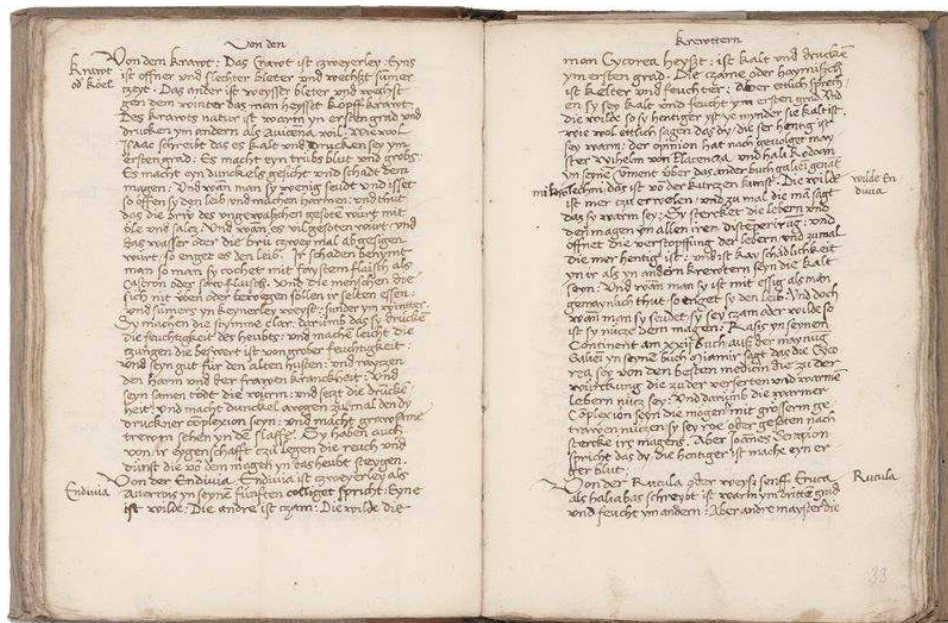 Von den
Krawt
od Koel
Von dem Krawt : Das Krawt ist czweyerley : Eyns
ist offner und slechter bleter und wechst sumer
czeyt . Das ander ist weysser bleter und wechst
gen dem winter das man heysset kopff krawt .
Des krawts natur ist warm yn ersten grad und
drucken ym andern als Avicena wil : wie wol
Isaac schreibt das es kalt und drucken sey ym
ersten grad : Es macht eyn trubs blut und grobs :
Es macht eyn dunckels gesicht und schadt dem
magen : Und wan man sy wenig seudt und isset
so offen sy den leib und machen harmen : und thut
das die brw des ungewaschen gesote wurt mit
ole und salcz : Und wan es vil gesoten wurt : und
das wasser oder die bru czwey mal abgesigen
wurt / so enget es den leib . Ir schaden benymt
man so man sy cochet mit feystem flaisch als
Castron oder schwflaisch . und die menschen die
sich nit uben oder bewegen sollen ir selten essen :
und sumers yn keynerley weyß : sunder ym winter .
Sy machen die stymme clar : darumb das sy drucken
die feuchtigkeit des heubts : und mache leicht die
czungen die beswert ist von grober feuchtigkeit :
und seyn gut für den alten husten : und rayczen
den harm und der frawen kranckheit : und
seyn samen tödt die würm : und seczt die drucken
heit : und macht dunckel awgen zumal den dy
druckner complexion seyn : und macht grawsame
trewm sehen yn dem slaffe . Sy haben auch
von ir eygenschafft czu legen die reuch und
dünst die vo dem magen yn das heubt steygen .
Endivia
Von der Endivia . Endivia ist czweyerley als
Averrois yn seyne fünften colliget spricht : Eyne
ist wilde : Die andre ist czam : Die wilde die
Krewttern
man Cycorea heyßt : ist kalt und drucken
ym ersten grad . Die czame oder haymisch
ist kelter und feuchter : Aber ettlich sprech
en sy sey kalt und feucht ym ersten grad . Und
die wilde so sy hentiger ist ye mynder sie kalt ist .
wie wol ettlich sagen das dy / die ser hentig ist
sey warm : der opinion hat nach gevolget may
ster Wilhelm von Placencia , und hali Rodoan
yn seynem coment über das ander buch galieni genat
mikrotechni : das ist vo der kurczen kunst . Die wilde
ist mer czu erwelen : und zu mal die man sagt
das sy warm sey : Sy stercket die lebern und
den magen yn allen iren distemperirug : und
offnet die verstopffung der lebern : und zumal
die mer hentig ist : und ist kay schadlichkeit
yn ir als yn andern krewtern seyn die kalt
seyn : Und wan man sy ist mit essig als man
gemaynlich thut so enget sy den leib : Und doch
wan man sy seudet sy sey czam ader wilde so
ist sy nücze dem magen : Rasis yn seynem
Continent am xxii buch auß der maynug
Galieni yn seyne buch Miamir sagt das die Cyco
rea sey von den besten medicin die zu der
würckung die zu der verserten und warme
lebern nucz sey : Und darumb die warmer
Complexion seyn die mogen mit grosserm ge
trawen nüczen sy sey roe oder gesoten nach
stercke irs magens . Aber Joanes Serapion
spricht das dy die hentiger ist mache eyn er
ger blut :
wilde En
divia
Von der Rucula oder weyß senff . Eruca
als haliabas schreybt ist warm ym dritte grad
und feucht ym andern : Aber andre mayster die
Rucula
33